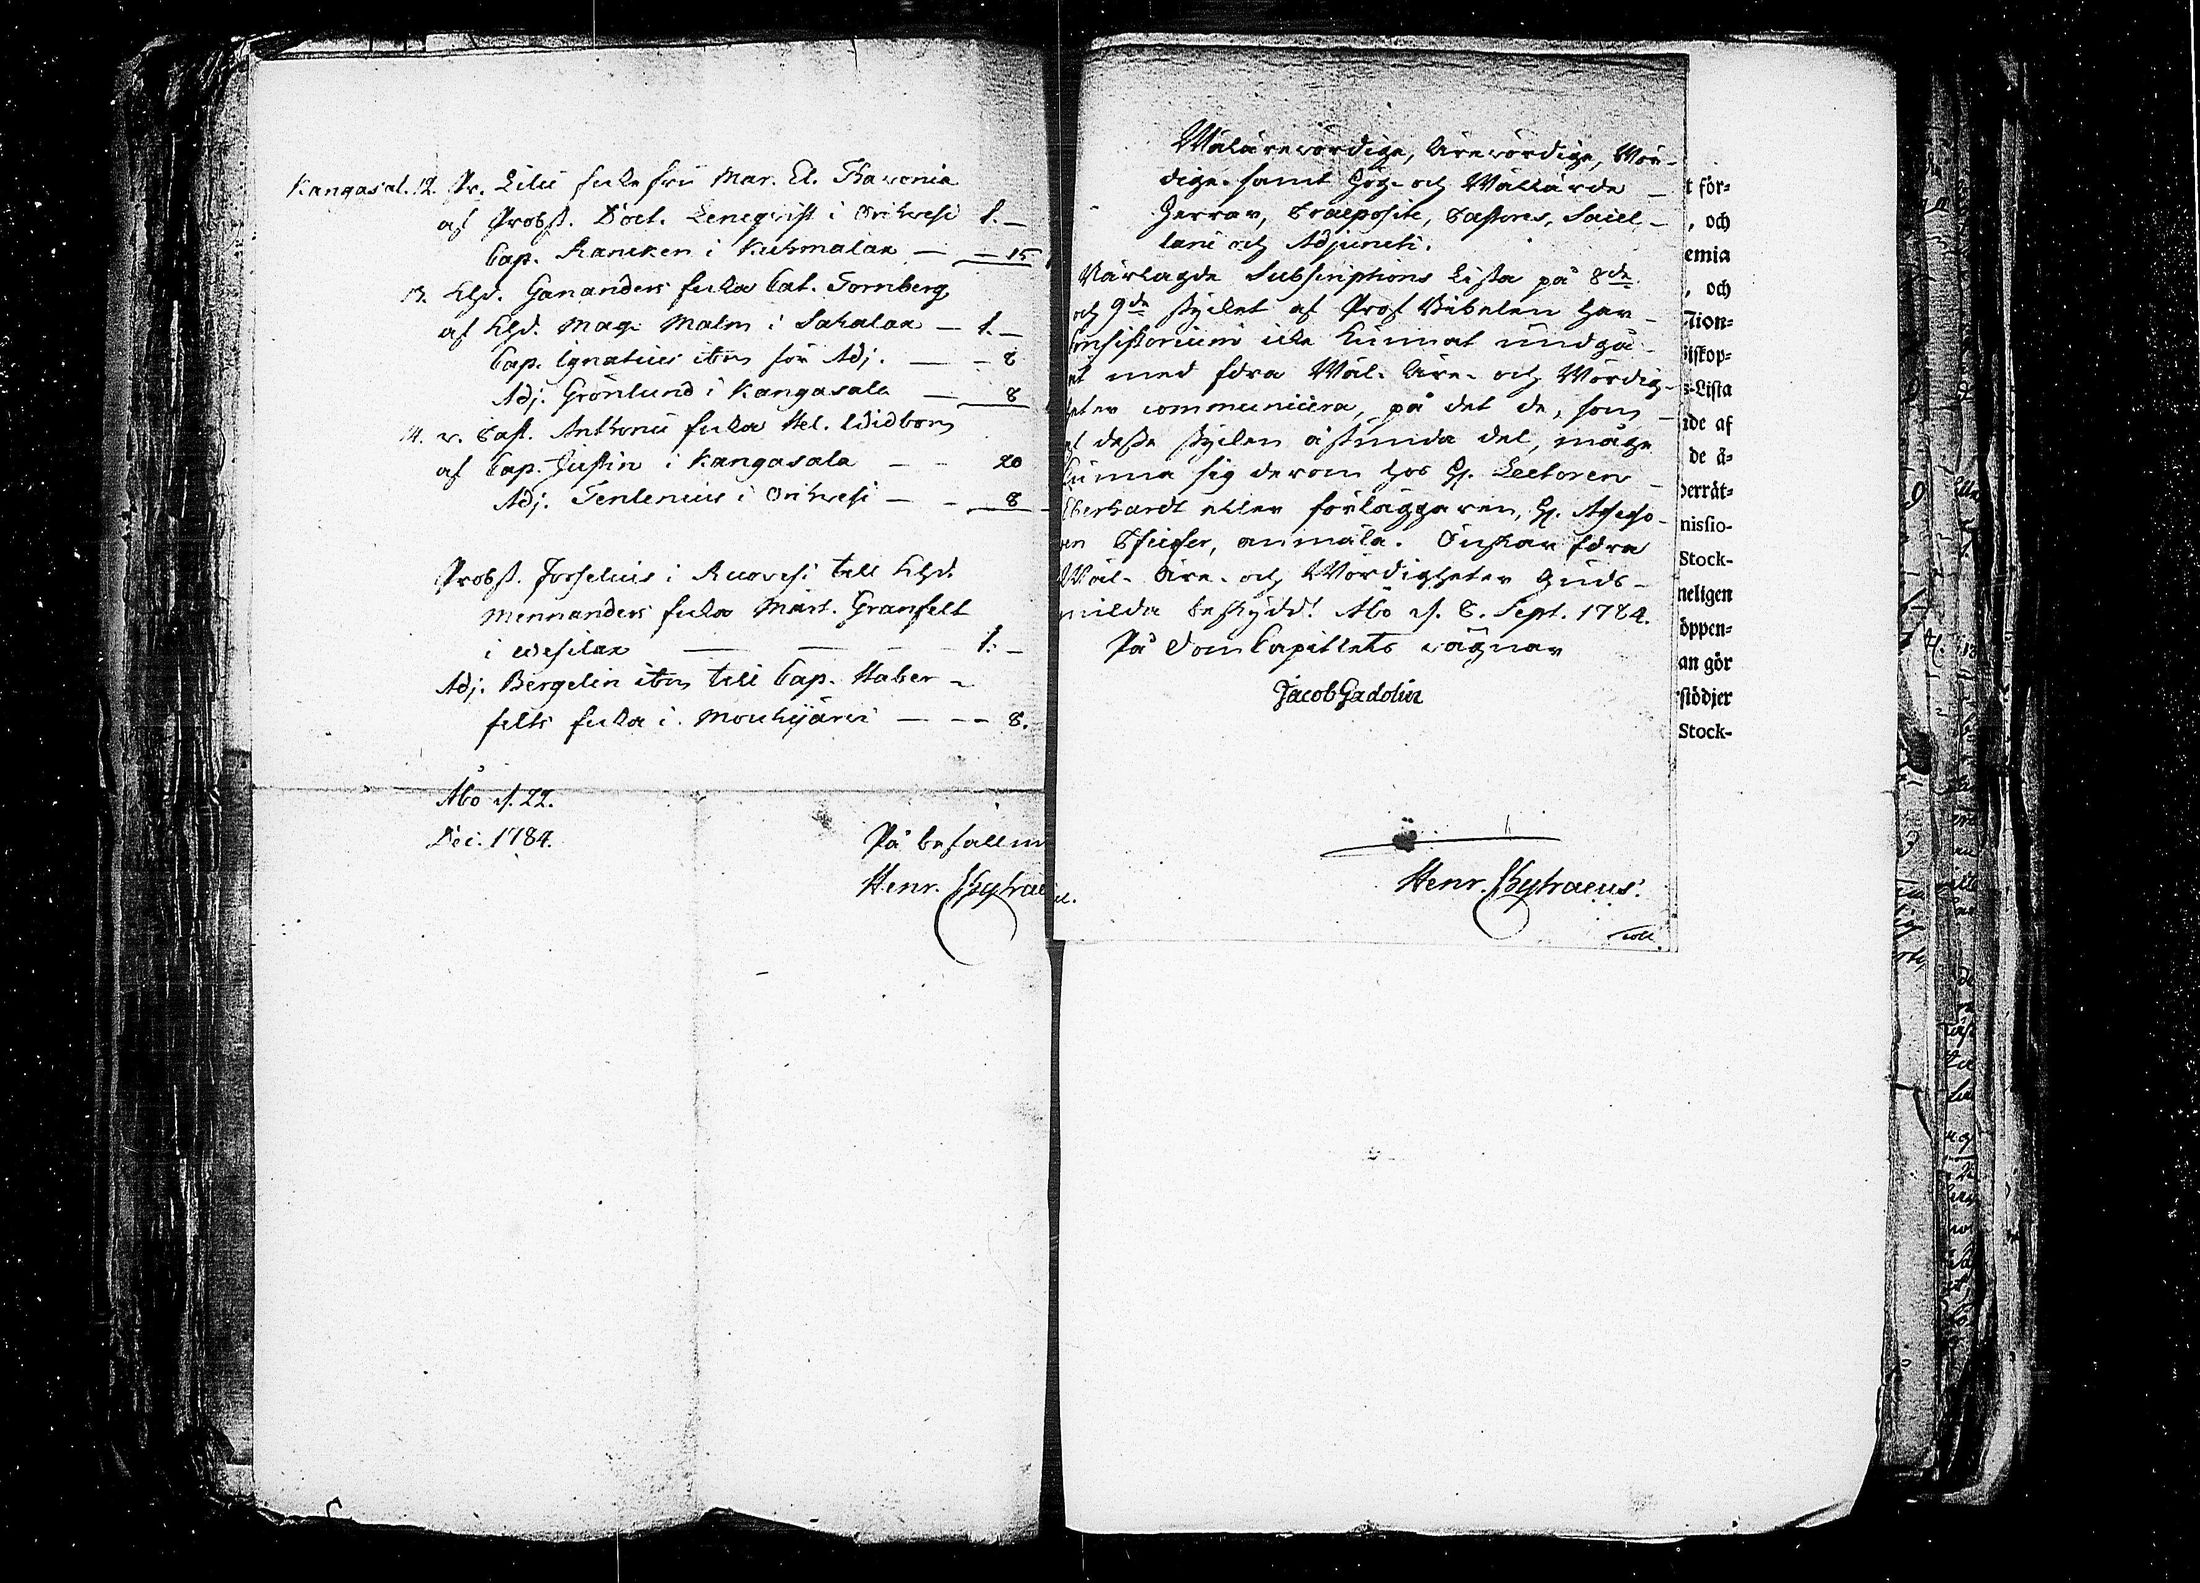 Kangasal. 12. Pr. Lilii Enke fru Mar. El. Thavonia
af Probst. Doct. Lencqvist i Orihvesi 1. —
Cap. Rancken i Kuhmalax — — 15
13. Khd. Gananders Enka Cat. Fornberg
af Khd. Mag. Malm i Sahalax — 1. —
Cap. Ignatius item för Adj. — — 8
Adj. Grönlund i Kangasala — 8
14. v. Past. Anthonii Enka Hel. Widbom
af Cap. Justin i Kangasala — — 20
Adj. Tenlenius i Orihvesi — — 8
Probst. Forselius i Ruovesi till Khd.
Mennanders Enka Mart. Granfelt
i Wesilax — — — — 1. —
Adj. Bergelin item till Cap. Haber-
felts Enka i Mouhijärvi — — — 8.
Åbo d. 22.
Dec. 1784.
På befalln
Henr. Chytrae
Wälärevördige, Ärevördige, Vör-
dige samt Hög- och Wällärde
Herrar, Praepositi, Pastores, Sacel-
lani och Adjuncti.
Närlagde Subscriptions Lista på 8de
och 9de stycket af Prof Bibelen har
Consistorium icke kunnat undgå
at med Edra Wäl- Äre- och Wördig-
heter communicera, på det de, som
af desse stycken åstunda del, måge
kunna sig derom hos H. Lectoren
Eberhardt eller förläggaren, H. Assesso-
ren Pfeifer, anmäla. Önskar Edra
Wäl- Äre- och Wördigheter Guds
milda beskydd! Åbo d. 8. Sept. 1784.
På DomCapitlets vägnar
Jacob Gadolin
Henr. Chytraeus.
t för-
, och
emia
, och
ction-
Biskop-
s-Lista
nde af
de ä-
derrät-
nissio-
Stock-
neligen
öppen-
an gör
stödjer
Stock-